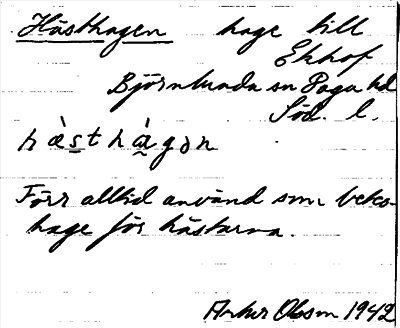 Hästhagen hage till
Ekhof
Björnlunda sn Daga hd
Söd. l.
hàsthàgən
Förr alltid använd som betes-
hage för hästarna.
Olsson 1942